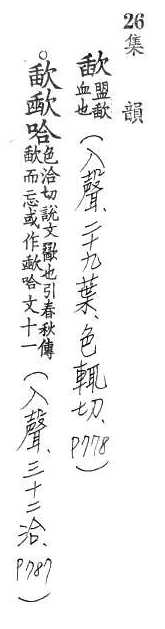 26集韻
歃盟歃血也(入聲、二十九葉、色輒切、P778)
。歃㰱哈色洽切說文歠也引春秋傳歃而忘或作㰱哈文十一(入聲、三十二洽、P787)